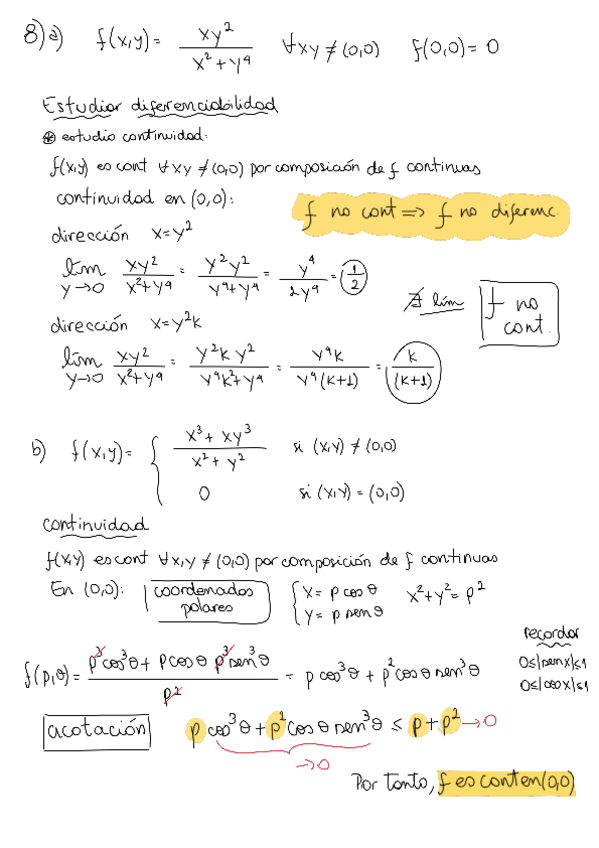 8) a) f(x,y) = xy² / x² + y⁴ ∀xy ≠ (0,0) f(0,0) = 0
Estudiar diferenciabilidad
⊛ estudio continuidad:
f(x,y) es cont ∀xy ≠ (0,0) por composición de f continuas
continuidad en (0,0):
f no cont ⇒ f no diferenc.
dirección x=y²
lim y→0 xy² / x²+y⁴ = y²y² / y⁴+y⁴ = y⁴ / 2y⁴ = 1/2
∄ lim f no cont.
dirección x=y²k
lim y→0 xy² / x²+y⁴ = y²k y² / y⁴k²+y⁴ = y⁴k / y⁴(k+1) = k / (k+1)
b) f(x,y) = { x³ + xy³ / x² + y² si (x,y) ≠ (0,0)
0 si (x,y) = (0,0)
continuidad
f(x,y) es cont ∀x,y ≠ (0,0) por composición de f continuas
En (0,0): coordenadas polares { x = ρ cos θ x²+y² = ρ²
y = ρ sen θ
recordar
0≤|sen x|≤1
0≤|cos x|≤1
f(ρ,θ) = ρ³cos³θ + ρcos θ ρ³sen³θ / ρ² = ρ cos³θ + ρ²cos θ sen³θ
acotación ρ cos³θ + ρ² cos θ sen³θ ≤ ρ + ρ² → 0
→ 0
Por tanto, f es cont en (0,0)